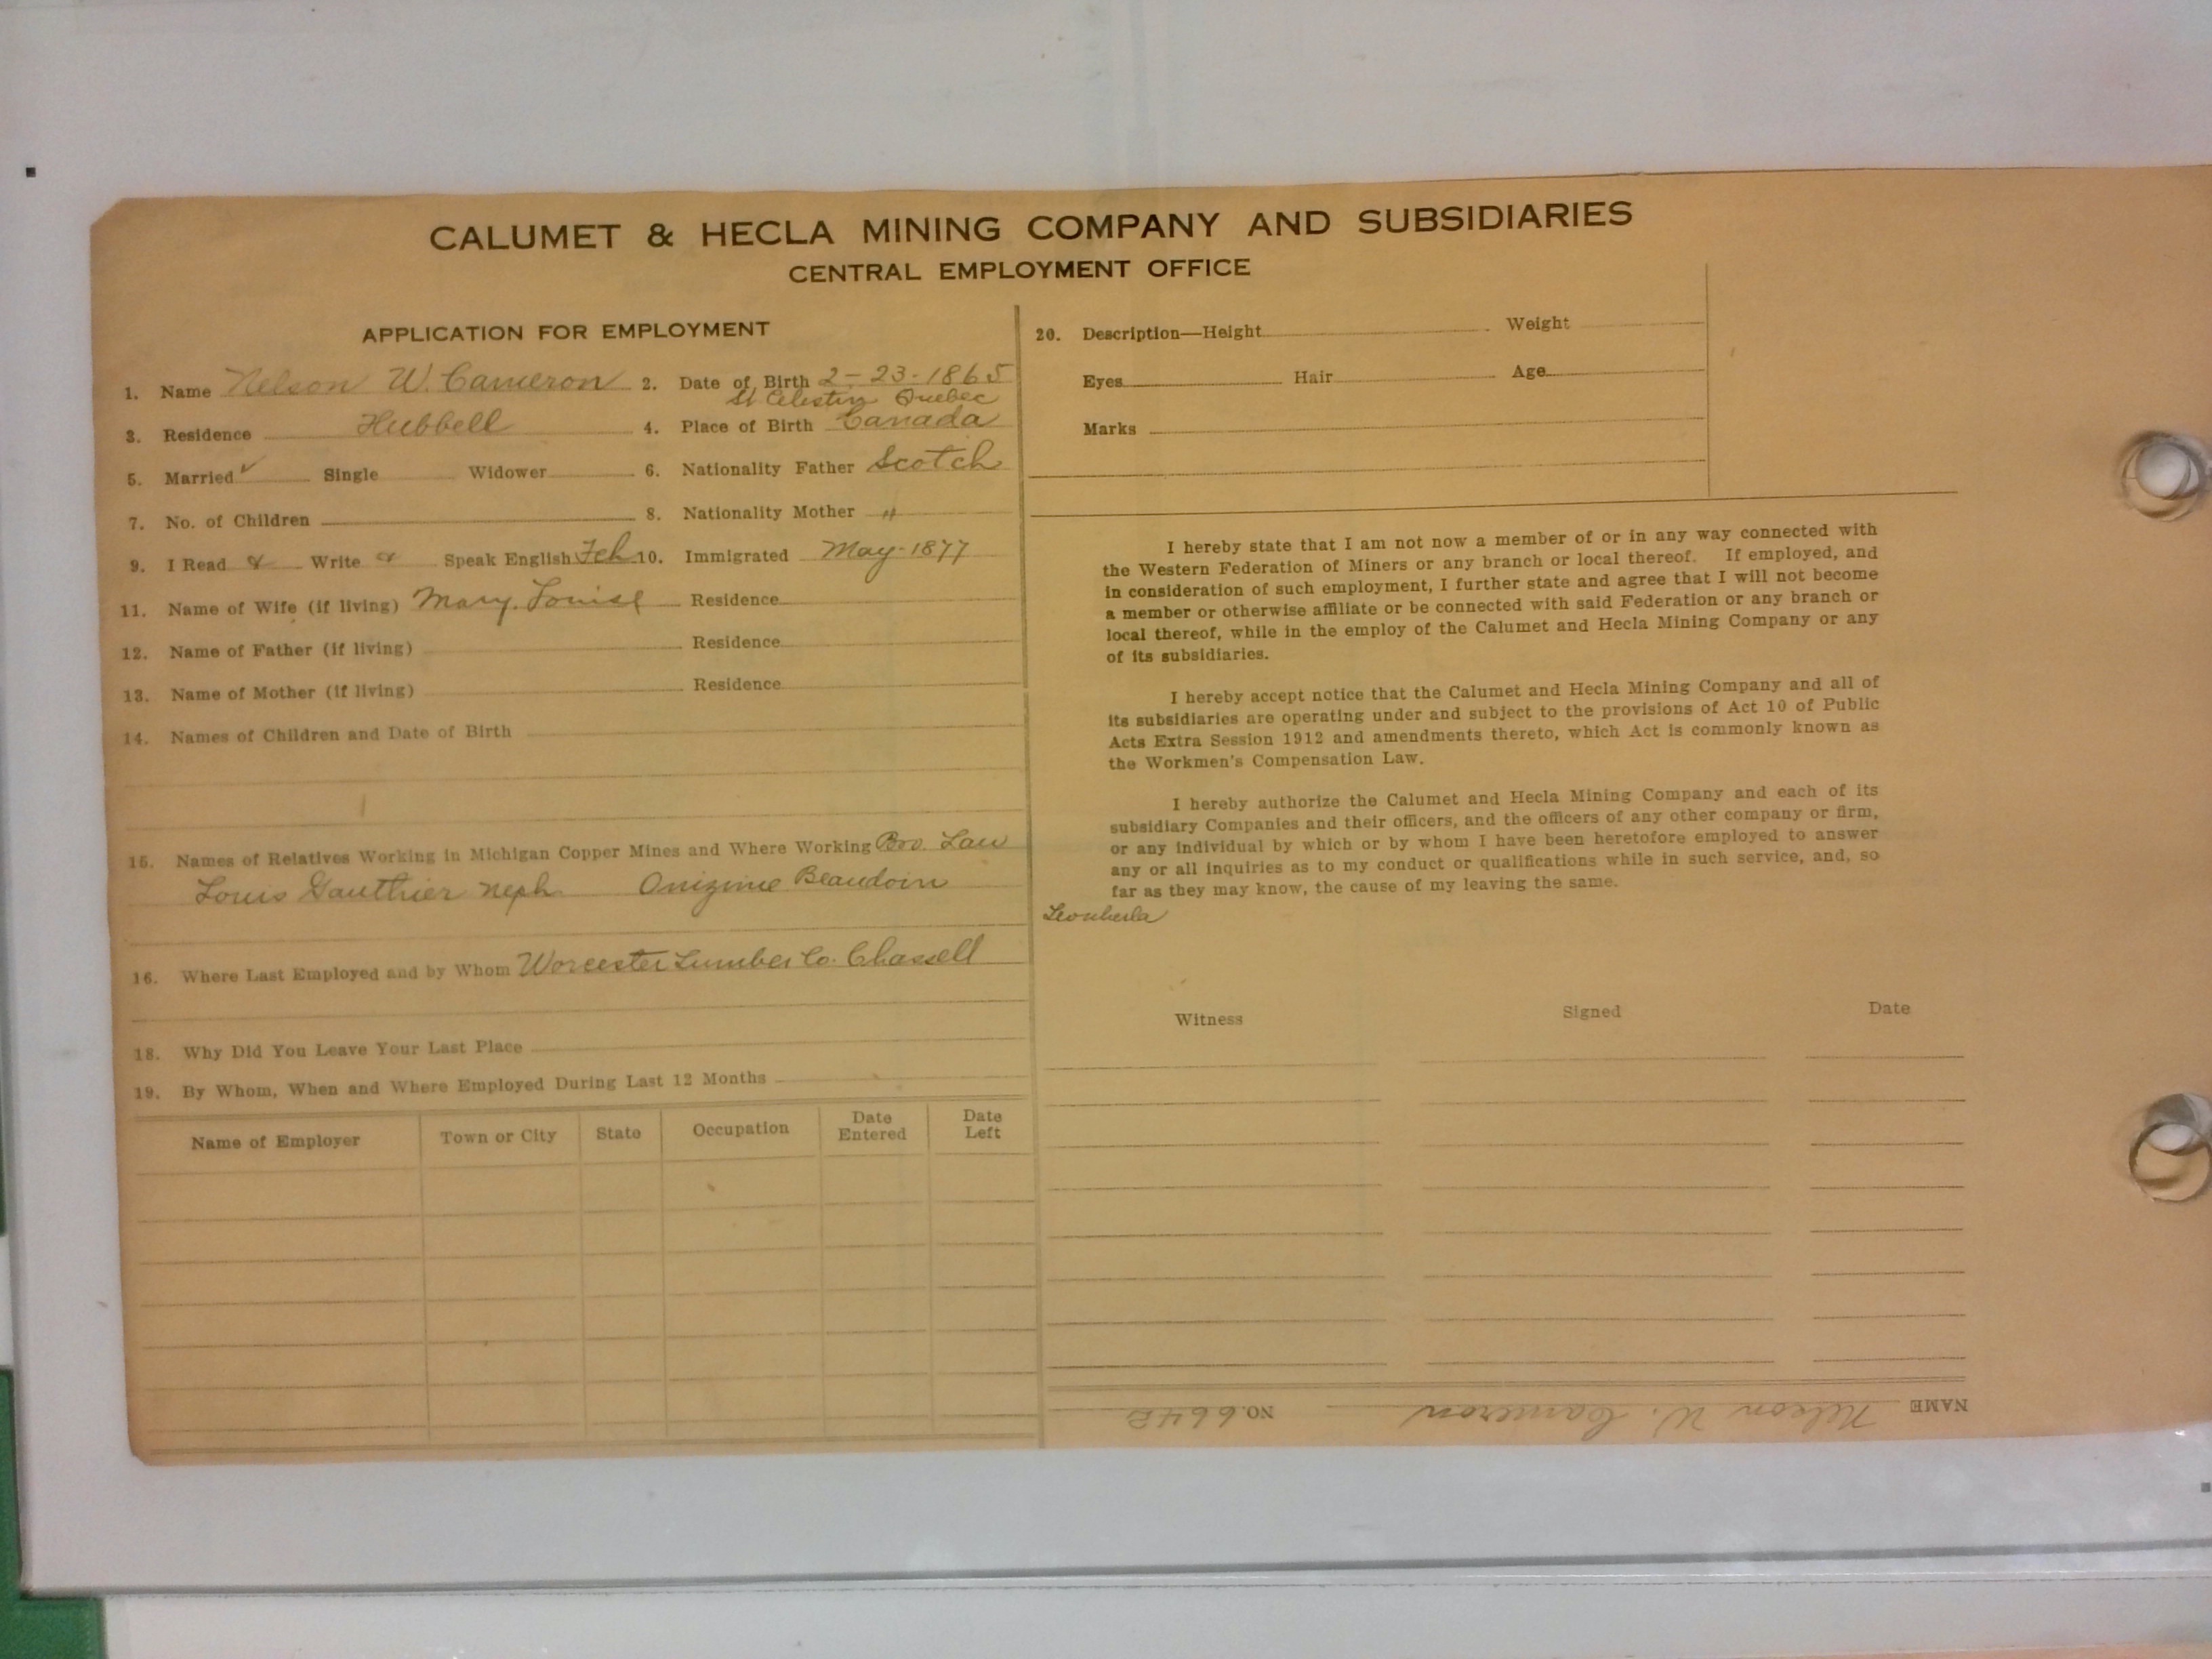 CALUMET & HECLA MINING COMPANY AND SUBSIDIARIES
CENTRAL EMPLOYMENT OFFICE
APPLICATION FOR EMPLOYMENT
1. Name Nelson W. Cameron 2. Date of Birth 2-23-1865
St Celestin Quebec
3. Residence Hubbell 4. Place of Birth Canada
5. Married ✓ Single Widower 6. Nationality Father Scotch
7. No. of Children 8. Nationality Mother "
9. I Read Write Speak English 10. Immigrated May-1877
11. Name of Wife (if living) Mary. Louise Residence
12. Name of Father (if living) Residence
13. Name of Mother (if living) Residence
14. Names of Children and Date of Birth
15. Names of Relatives Working in Michigan Copper Mines and Where Working Bro. Law
Louis Gauthier neph Onizime Beaudoin
16. Where Last Employed and by Whom Worcester Lumber Co. Chassell
18. Why Did You Leave Your Last Place
19. By Whom, When and Where Employed During Last 12 Months
Name of Employer Town or City State Occupation Date Entered Date Left
20. Description—Height Weight
Eyes Hair Age
Marks
I hereby state that I am not now a member of or in any way connected with
the Western Federation of Miners or any branch or local thereof. If employed, and
in consideration of such employment, I further state and agree that I will not become
a member or otherwise affiliate or be connected with said Federation or any branch or
local thereof, while in the employ of the Calumet and Hecla Mining Company or any
of its subsidiaries.
I hereby accept notice that the Calumet and Hecla Mining Company and all of
its subsidiaries are operating under and subject to the provisions of Act 10 of Public
Acts Extra Session 1912 and amendments thereto, which Act is commonly known as
the Workmen's Compensation Law.
I hereby authorize the Calumet and Hecla Mining Company and each of its
subsidiary Companies and their officers, and the officers of any other company or firm,
or any individual by which or by whom I have been heretofore employed to answer
any or all inquiries as to my conduct or qualifications while in such service, and, so
far as they may know, the cause of my leaving the same.
Witness Signed Date
NAME Nelson W. Cameron NO. 6642